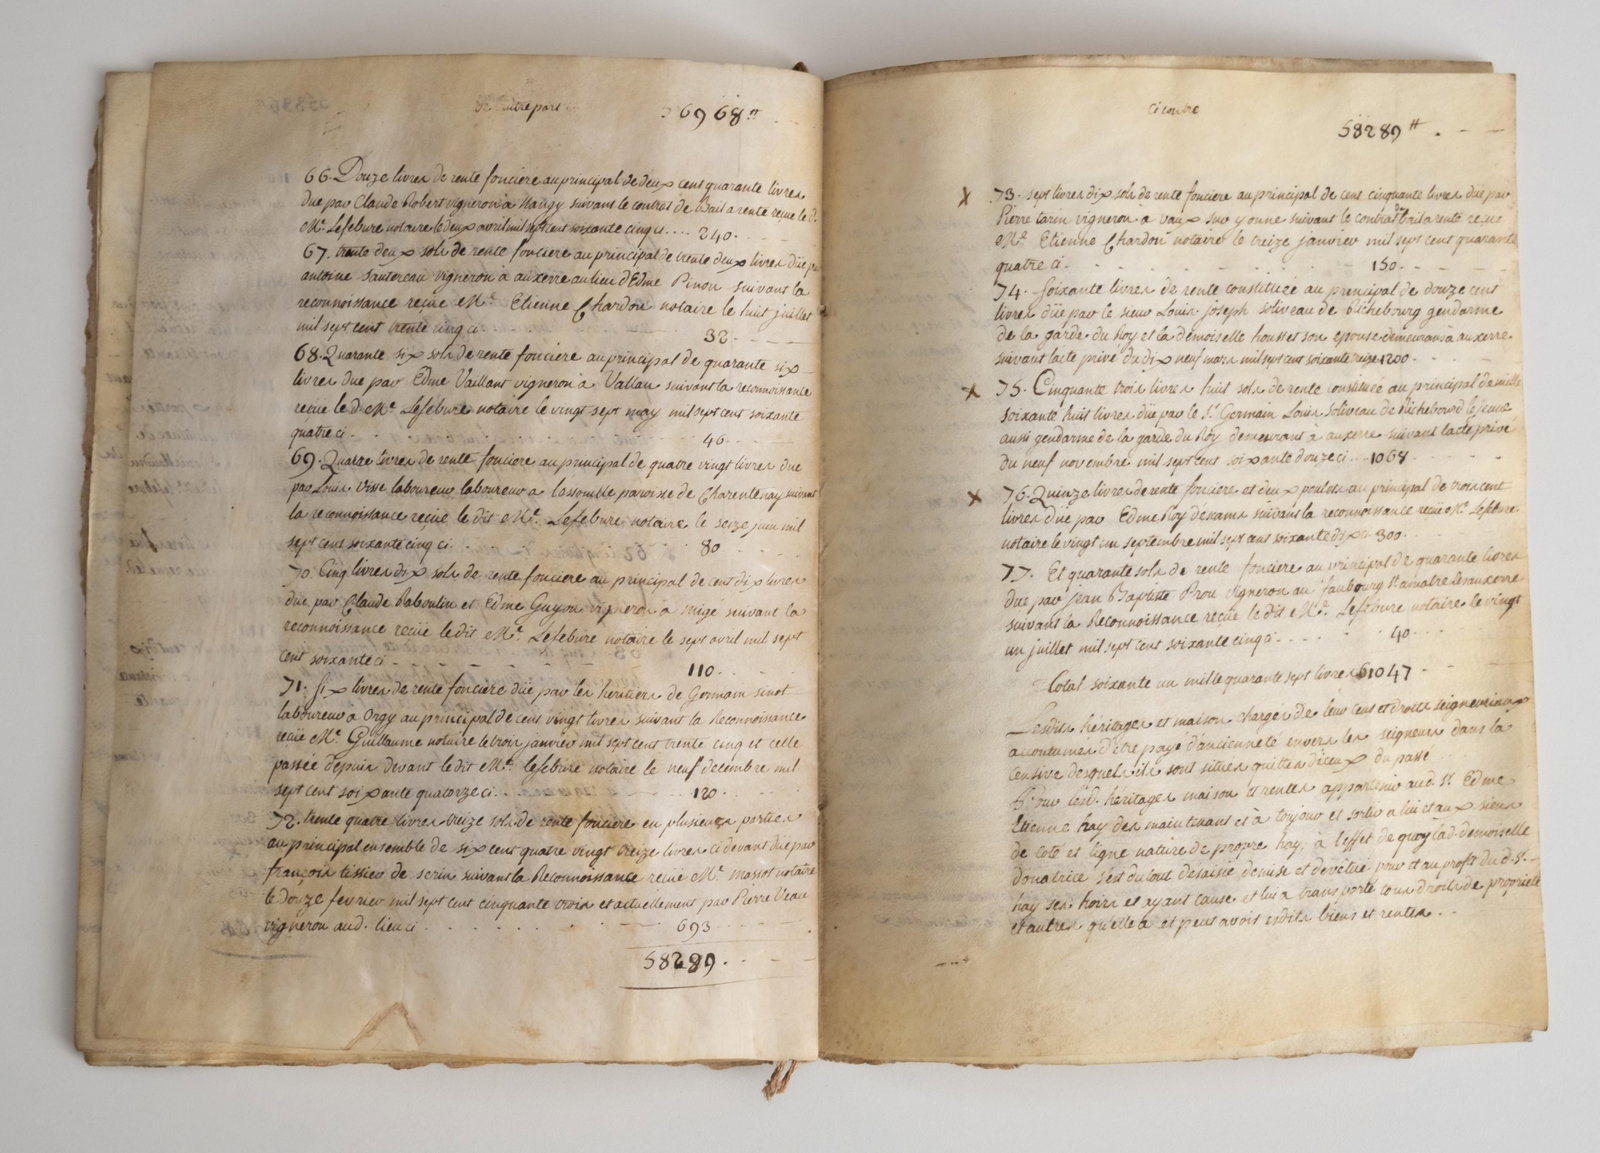 De autre part
56968ᵗᵗ
66. Douze livres de rente fonciere au principal de deux cent quarante livres
due par Claude Robert vigneron à suivant le contrat de Bail a rente recue le d.
Mᵉ. Lefebure notaire le deux avril mil sept cent soixante cinq ci.... 240.
67. trente deux sols de rente fonciere au principal de trente deux livres düe par
antoine Sautereau vigneron à auxerre au lieu d'Edme Pinon suivant la
reconnoissance reçüe Mᵉ. Etienne Chardon notaire le huit juillet
mil sept cent trente cinq ci 32.
68. Quarante six sols de rente fonciere au principal de quarante six
livres due par Edme Vaillant vigneron à Vallan suivant la reconnoissance
recue le d. Mᵉ. Lefebure notaire le vingt sept may mil sept cent soixante
quatre ci. 46.
69. Quatre livres de rente fonciere au principal de quatre vingt livres due
par Louis Visse laboureur laboureur a paroisse de Charentenay suivant
la reconnoissance reçüe le dit Mᵉ. Lefebure notaire le seize juin mil
sept cent soixante cinq ci. 80
70. Cinq livres dix sols de rente fonciere au principal de cent dix livres
due par Claude Raboulin et Edme Guyon vigneron a migé suivant la
reconnoissance reçüe le dit Mᵉ. Lefebure notaire le sept avril mil sept
cent soixante ci 110.
71. Six livres de rente fonciere düe par les heritiers de Germain sinot
laboureur à Orgy au principal de cent vingt livres suivant la Reconnoissance
recüe Mᵉ. Guillaume notaire le trois janvier mil sept cent trente cinq et celle
passée depuis devant le dit Mᵉ. lefebure notaire le neuf decembre mil
sept cent soixante quatorze ci. 120.
72. trente quatre livres treize sols de rente fonciere en plusieurs parties
au principal ensemble de six cent quatre vingt treize livres ci devant düe par
françois tissier de serin suivant la Reconnoissance recue Mᵉ. massot notaire
le douze fevrier mil sept cent cinquante trois et actuellement par Pierre Veau
vigneron aud. lieu ci 693
58289.
Ci contre
58289ᵗᵗ.
x 73. sept livres dix sols de rente fonciere au principal de cent cinquante livres düe par
Pierre tarin vigneron à vaux sur yonne suivant le contrat de bail a rente reçüe
Mᵉ. Etienne Chardon notaire le treize janvier mil sept cent quarante
quatre ci. 150.
74. Soixante livres de rente constituée au principal de douze cent
livres düe par le sieur Louis joseph soliveau de Richebourg gendarme
de la garde du Roy et la demoiselle housset son epouse demeurant à auxerre
suivant lacte privé du dix neuf mars mil sept cent soixante treize 1200.
x 75. Cinquante trois livres huit sols de rente constituée au principal de mille
soixante huit livres düe par le Sʳ. Germain Louis soliveau de Richebourd le jeune
aussi gendarme de la garde du Roy demeurant à auxerre suivant lacte privé
du neuf novembre mil sept cent soixante douze ci... 1068
x 76. Quinze livres de rente fonciere et deux poulets au principal de trois cent
livres düe par Edme Roy suivant la reconnoissance recüe Mᵉ. Lefebure
notaire le vingt un septembre mil sept cent soixante dix ci 300.
77. Et quarante sols de rente fonciere au principal de quarante livres
due par jean Baptiste Prou vigneron au faubourg Sᵗ amatre les auxerre
suivant la Reconnoissance reçüe le dit Mᵉ. Lefebure notaire le vingt
un juillet mil sept cent soixante cinq ci 40.
Total soixante un mille quarante sept livres 61047
Lesdits héritages et maison chargés de leur cens et droits seigneuriaux
accoutumés d'être payé d'ancienneté envers les seigneurs dans la
censive desquels ils sont situés quittes d'iceux du passé
Pour lesd. heritages maison et rentes appartenir aud. Sʳ. Edme
Etienne hay des maintenant et à toujours et sortir a lui et aux siens
de coté et ligne nature de propre hay, à l'effet de quoy lad. demoiselle
donatrice s'est du tout desaisie demise et dévêtüe pour et au profit du d. Sʳ.
hay ses hoirs et ayant cause et lui a transporté tous droits de propriete
et autres qu'elle a et peut avoir esdits biens et rentes.